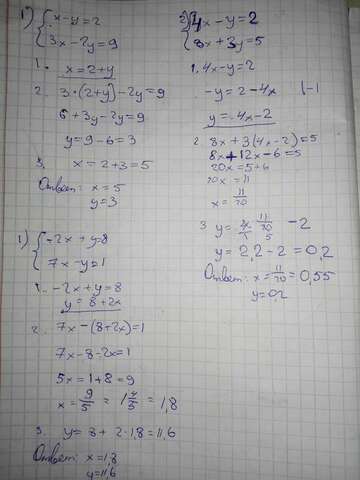 1) { x-y=2
3x-2y=9
1. x=2+y
2. 3·(2+y)-2y=9
6+3y-2y=9
y=9-6=3
3. x=2+3=5
Ответ: x=5
y=3
1) { -2x+y=8
7x-y=1
1. -2x+y=8
y=8+2x
2. 7x-(8+2x)=1
7x-8-2x=1
5x=1+8=9
x=9/5=1 4/5=1,8
3. y=8+2·1,8=11,6
Ответ: x=1,8
y=11,6
2) { 4x-y=2
8x+3y=5
1. 4x-y=2
-y=2-4x |-1
y=4x-2
2 8x+3(4x-2)=5
8x+12x-6=5
20x=5+6
20x=11
x=11/20
3 y=4·11/20-2
5
y=2,2-2=0,2
Ответ: x=11/20=0,55
y=0,2